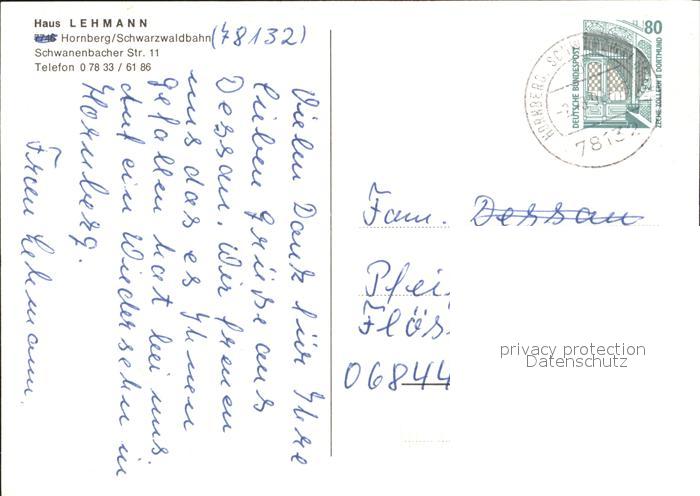 Haus LEHMANN
Hornberg/Schwarzwaldbahn (78132)
Schwanenbacher Str. 11
Telefon 0 78 33 / 61 86
Vielen Dank für Ihre
lieben Grüße aus
Dessau. Wir freuen
uns das es Ihnen
gefallen hat bei uns.
Auf ein Wiedersehn in
Hornberg.
Frau Lehmann.
80
DEUTSCHE BUNDESPOST
ZECHE ZOLLERN II DORTMUND
HORNBERG, SCHWARZWALDBAHN
78132
Fam. Dessau
Pfei
Flös
06844
privacy protection
Datenschutz